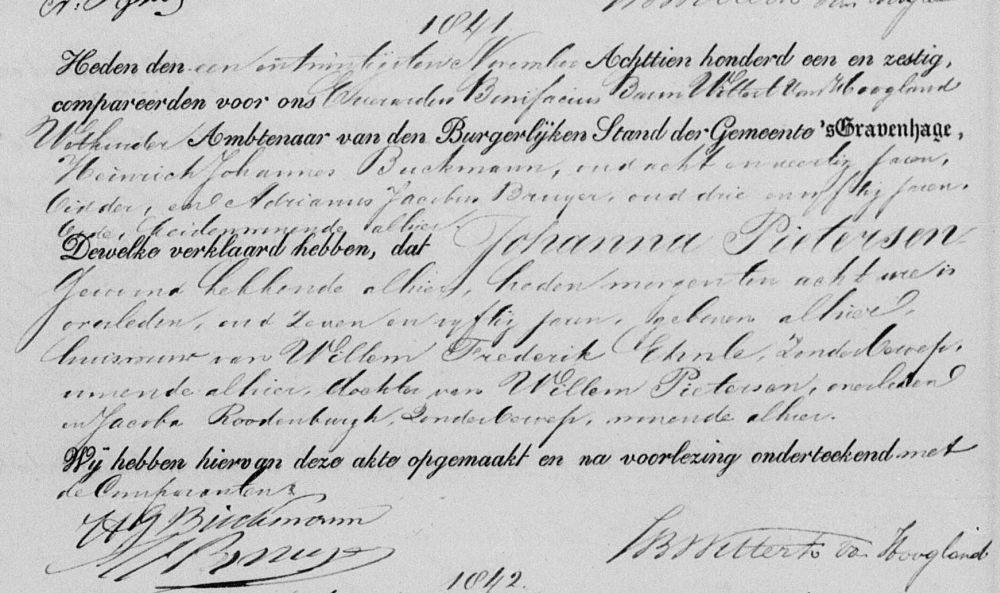 1841.
Heden den een en twintigsten November Achttien honderd een en zestig,
compareerden voor ons Everardus Bonifacius Baron Wittert Van Hoogland
Wethouder Ambtenaar van den Burgerlijken Stand der Gemeente 'sGravenhage,
Heinrich Johannes Buckmann, oud acht en veertig jaren,
bidder, en Adrianus Jacobus Bruyer, oud drie en vijftig jaren,
beide wonende alhier.
Dewelke verklaard hebben, dat Johanna Pietersen
Gewoond hebbende alhier, heden morgen ten acht ure is
overleden, oud zeven en vyftig jaren, geboren alhier,
huisvrouw van Willem Frederik Ehnle, zonder beroep,
wonende alhier, dochter van Willem Pietersen, overleden
en Jacoba Roodenburgh, zonder beroep, wonende alhier.
Wij hebben hiervan deze akte opgemaakt en na voorlezing onderteekend met
de Comparanten
HJ Buckmann
EB Wittert van Hoogland
1842.